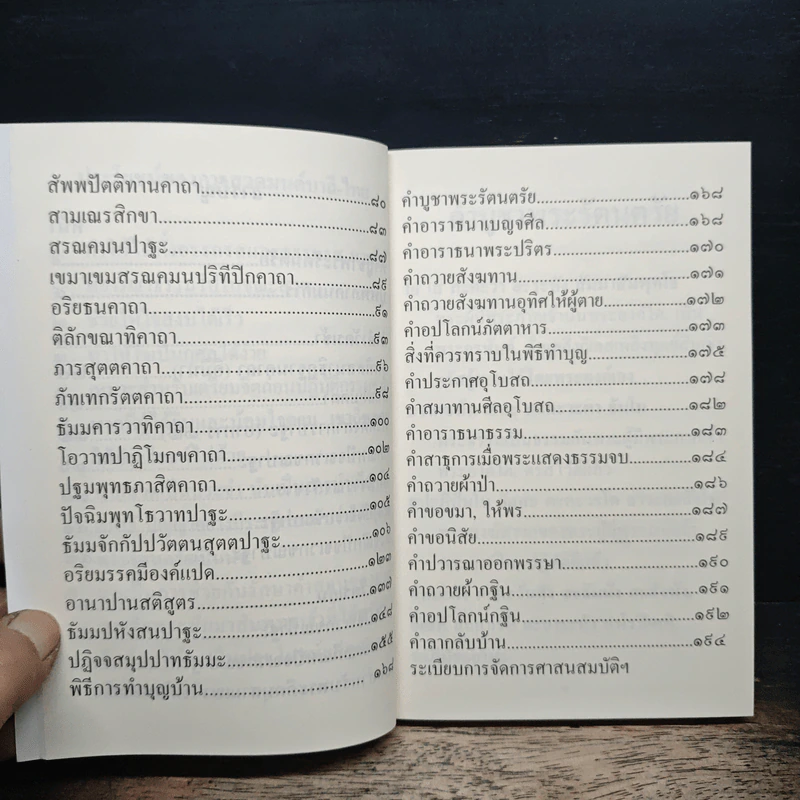 สัพพปัตติทานคาถา........................๘๐
สามเณรสิกขา........................๘๓
สรณคมนปาฐะ........................๘๗
เขมาเขมสรณคมนปริทีปิกคาถา...............๘๙
อริยธนคาถา........................๙๑
ติลักขณาทิคาถา........................๙๓
ภารสุตตคาถา........................๙๖
ภัทเทกรัตตคาถา........................๙๘
ธัมมคารวาทิคาถา........................๑๐๐
โอวาทปาฏิโมกขคาถา........................๑๐๒
ปฐมพุทธภาสิตคาถา........................๑๐๔
ปัจฉิมพุทโธวาทปาฐะ........................๑๐๕
ธัมมจักกัปปวัตตนสุตตปาฐะ...............๑๐๖
อริยมรรคมีองค์แปด........................๑๒๓
อานาปานสติสูตร........................๑๓๗
ธัมมปหังสนปาฐะ........................๑๔๘
ปฏิจจสมุปปาทธัมมะ........................๑๕๕
พิธีการทำบุญบ้าน........................๑๖๘
คำบูชาพระรัตนตรัย........................๑๖๘
คำอาราธนาเบญจศีล........................๑๖๘
คำอาราธนาพระปริตร........................๑๗๐
คำถวายสังฆทาน........................๑๗๑
คำถวายสังฆทานอุทิศให้ผู้ตาย...............๑๗๒
คำอปโลกน์ภัตตาหาร........................๑๗๓
สิ่งที่ควรทราบในพิธีทำบุญ...............๑๗๕
คำประกาศอุโบสถ........................๑๗๘
คำสมาทานศีลอุโบสถ........................๑๘๒
คำอาราธนาธรรม........................๑๘๓
คำสาธุการเมื่อพระแสดงธรรมจบ...............๑๘๔
คำถวายผ้าป่า........................๑๘๖
คำขอขมา, ให้พร........................๑๘๗
คำขอนิสัย........................๑๘๙
คำปวารณาออกพรรษา........................๑๙๐
คำถวายผ้ากฐิน........................๑๙๑
คำอปโลกน์กฐิน........................๑๙๒
คำลากลับบ้าน........................๑๙๔
ระเบียบการจัดการศาสนสมบัติฯ